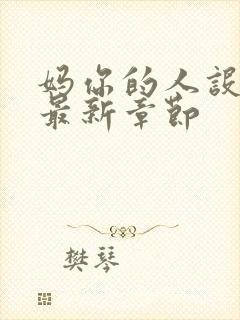 妈你的人设
最新章节
樊琴